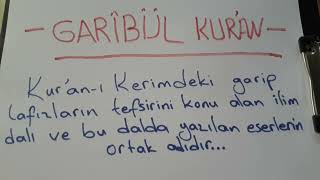 — GARÎBÜL KUR'AN —
Kur'an-ı Kerimdeki garip
lafızların tefsirini konu alan ilim
dalı ve bu dalda yazılan eserlerin
ortak adıdır...